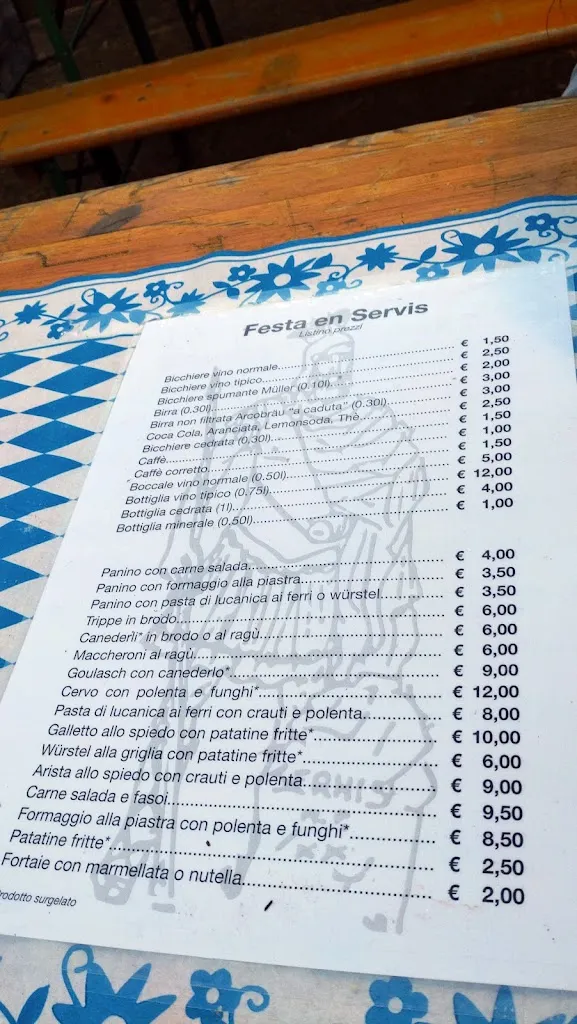 Festa en Servis
Listino prezzi
Bicchiere vino normale € 1,50
Bicchiere vino tipico € 2,50
Bicchiere spumante Müller (0.10l) € 2,00
Birra (0.30l) € 3,00
Birra non filtrata Arcobräu "a caduta" (0.30l) € 3,00
Coca Cola, Aranciata, Lemonsoda, Thè € 2,50
Bicchiere cedrata (0,30l) € 1,50
Caffè € 1,00
Caffè corretto € 1,50
Boccale vino normale (0.50l) € 5,00
Bottiglia vino tipico (0.75l) € 12,00
Bottiglia cedrata (1l) € 4,00
Bottiglia minerale (0,50l) € 1,00
Panino con carne salada € 4,00
Panino con formaggio alla piastra € 3,50
Panino con pasta di lucanica ai ferri o würstel € 3,50
Trippe in brodo € 6,00
Canederli* in brodo o al ragù € 6,00
Maccheroni al ragù € 6,00
Goulasch con canederlo* € 9,00
Cervo con polenta e funghi* € 12,00
Pasta di lucanica ai ferri con crauti e polenta € 8,00
Galletto allo spiedo con patatine fritte* € 10,00
Würstel alla griglia con patatine fritte* € 6,00
Arista allo spiedo con crauti e polenta € 9,00
Carne salada e fasoi € 9,50
Formaggio alla piastra con polenta e funghi* € 8,50
Patatine fritte* € 2,50
Fortaie con marmellata o nutella € 2,00
rodotto surgelato